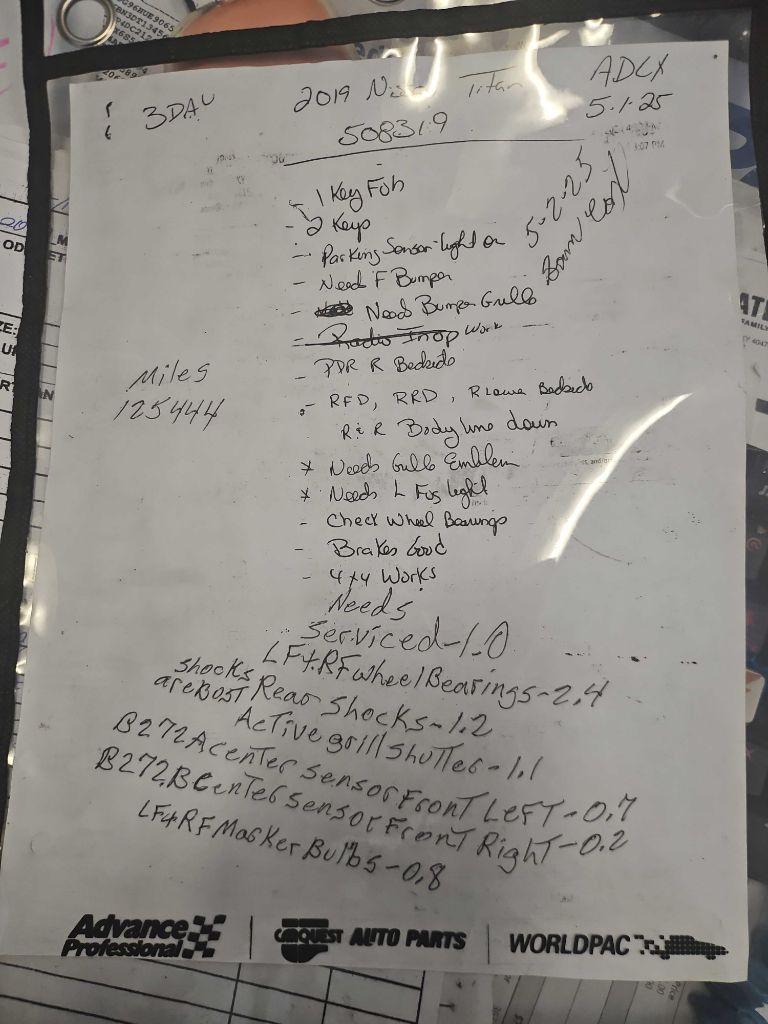 3DAU
2019 Nissan Titan
ADCX
5.1.25
508319
- 1 Key Fob
- 2 Keys
- Parking Sensor-light on
5-2-25
- Need F Bumper
- Need Bumper Grille
- Radio Inop Work
- PDR R Bedside
Miles
125444
- RFD, RRD, R Lower Bedside
R & R Body line down
* Needs Grille Emblem
* Needs L Fog light
- Check Wheel Bearings
- Brakes Good
- 4x4 Works
Needs
Serviced-1.0
LF&RF Wheel Bearings-2.4
Shocks
are Bost Rear Shocks-1.2
Active grill Shutter-1.1
B272A Center Sensor Front Left-0.7
B272B Center Sensor Front Right-0.2
LF&RF Marker Bulbs-0.8
Advance
Professional
CARQUEST AUTO PARTS
WORLDPAC